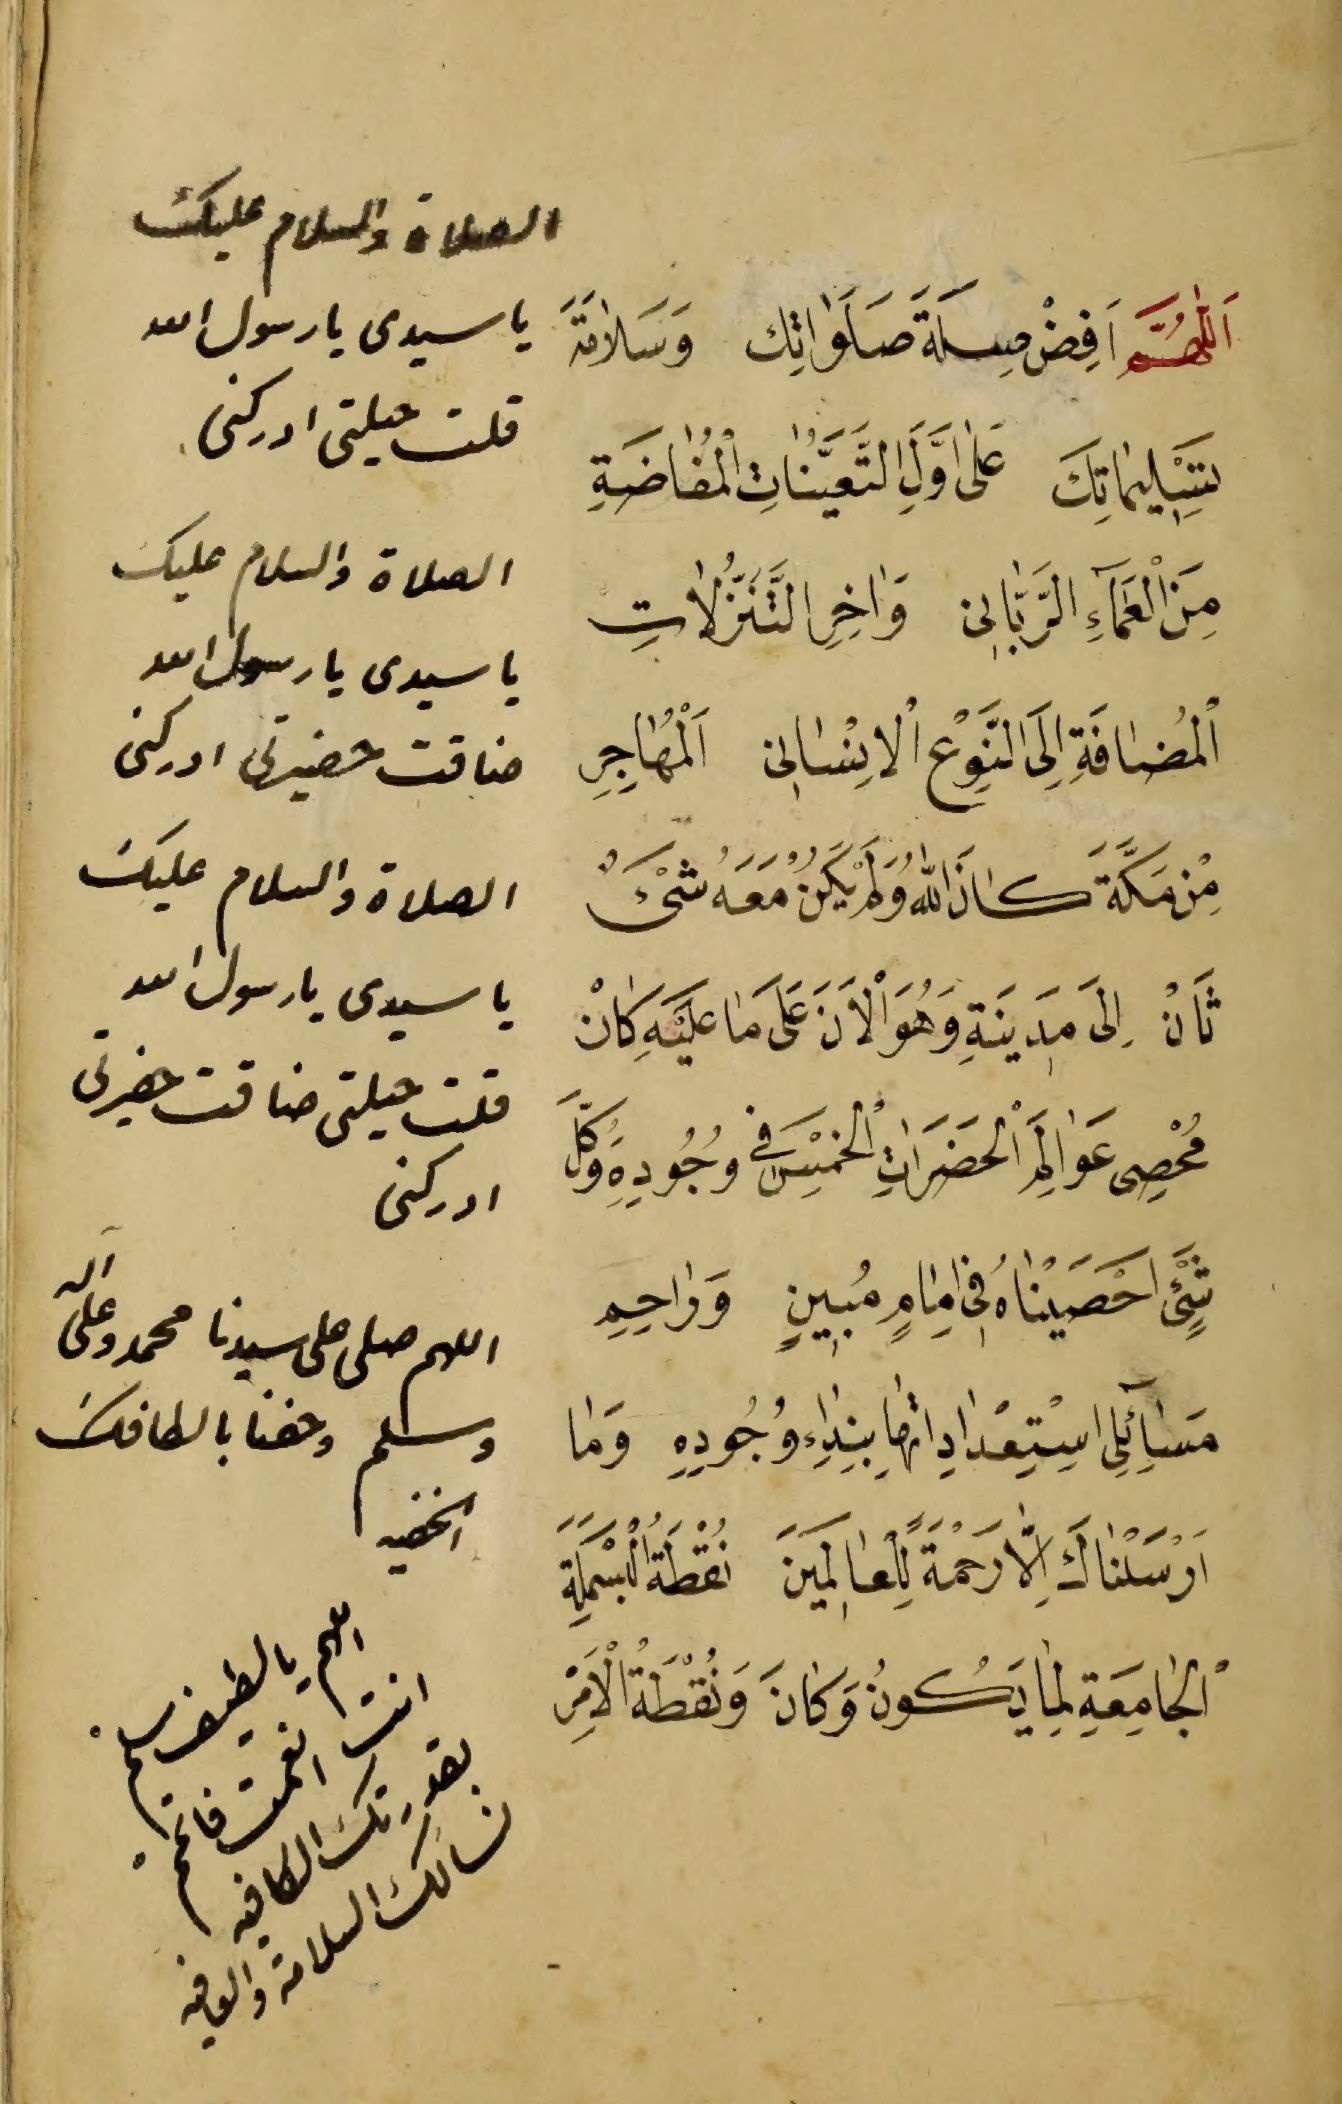 اَللّٰهُمَّ اَفِضْ صِلَةَ صَلَوَاتِكَ وَسَلَامَةَ
تَسْلِيمَاتِكَ عَلٰى اَوَّلِ التَّعَيُّنَاتِ الْمُفَاضَةِ
مِنَ الْعَمَآءِ الرَّبَّانِى وَاٰخِرِ التَّنَزُّلَاتِ
الْمُضَافَةِ اِلَى النَّوْعِ الْاِنْسَانِى اَلْمُهَاجِرِ
مِنْ مَكَّةَ كَانَ اللّٰهُ وَلَمْ يَكُنْ مَعَهُ شَىْءٌ
ثَانْ اِلَى مَدِينَةِ وَهُوَ الْاٰنَ عَلَى مَا عَلَيْهِ كَانْ
مُحْصِى عَوَالِمِ الْحَضَرَاتِ الْخَمْسِ فِى وُجُودِهِ وَكُلَّ
شَىْءٍ اَحْصَيْنَاهُ فِى اِمَامٍ مُبِينٍ وَرَاحِمِ
سَائِلِى اسْتِعْدَادَاتِهَا بِنِدَاءِ وُجُودِهِ وَمَا
اَرْسَلْنَاكَ اِلَّا رَحْمَةً لِلْعَالَمِينَ نُقْطَةُ الْبَسْمَلَةِ
الْجَامِعَةِ لِمَا يَكُونُ وَكَانَ وَنُقْطَةُ الْاَمْرِ
الصلاة والسلام عليك
يا سيدى يا رسول الله
قلت حيلتى ادركنى
الصلاة والسلام عليك
يا سيدى يا رسول الله
ضاقت حضيرتى ادركنى
الصلاة والسلام عليك
يا سيدى يا رسول الله
قلت حيلتى ضاقت حضرتى
ادركنى
اللهم صلى على سيدنا محمد وعلى آله
وسلم وحفنا بالطافك
الخفيه
اللهم يا لطيف سلم
انت انعمت فاتمم
بقدرتك الكافيه
نسالك السلامة والعافيه